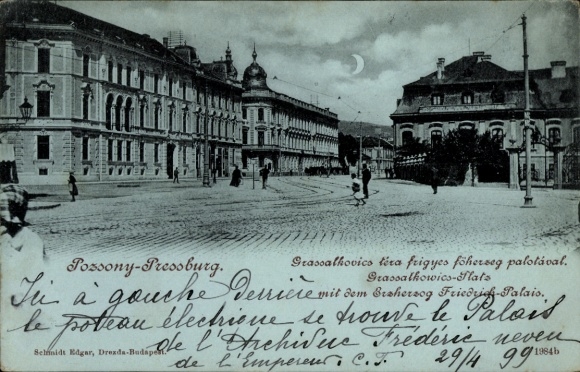 Pozsony-Pressburg.
Grassalkovics téra frigyes föherzeg palotával.
Grassalkowics-Platz
mit dem Erzherzog Friedrich-Palais.
Ici à gauche Derrière
le poteau électrique se trouve le Palais
de l'Archiduc Frédéric neveu
de l'Empereur. C.F. 29/4 99
Schmidt Edgar, Drezda-Budapest.
1984b